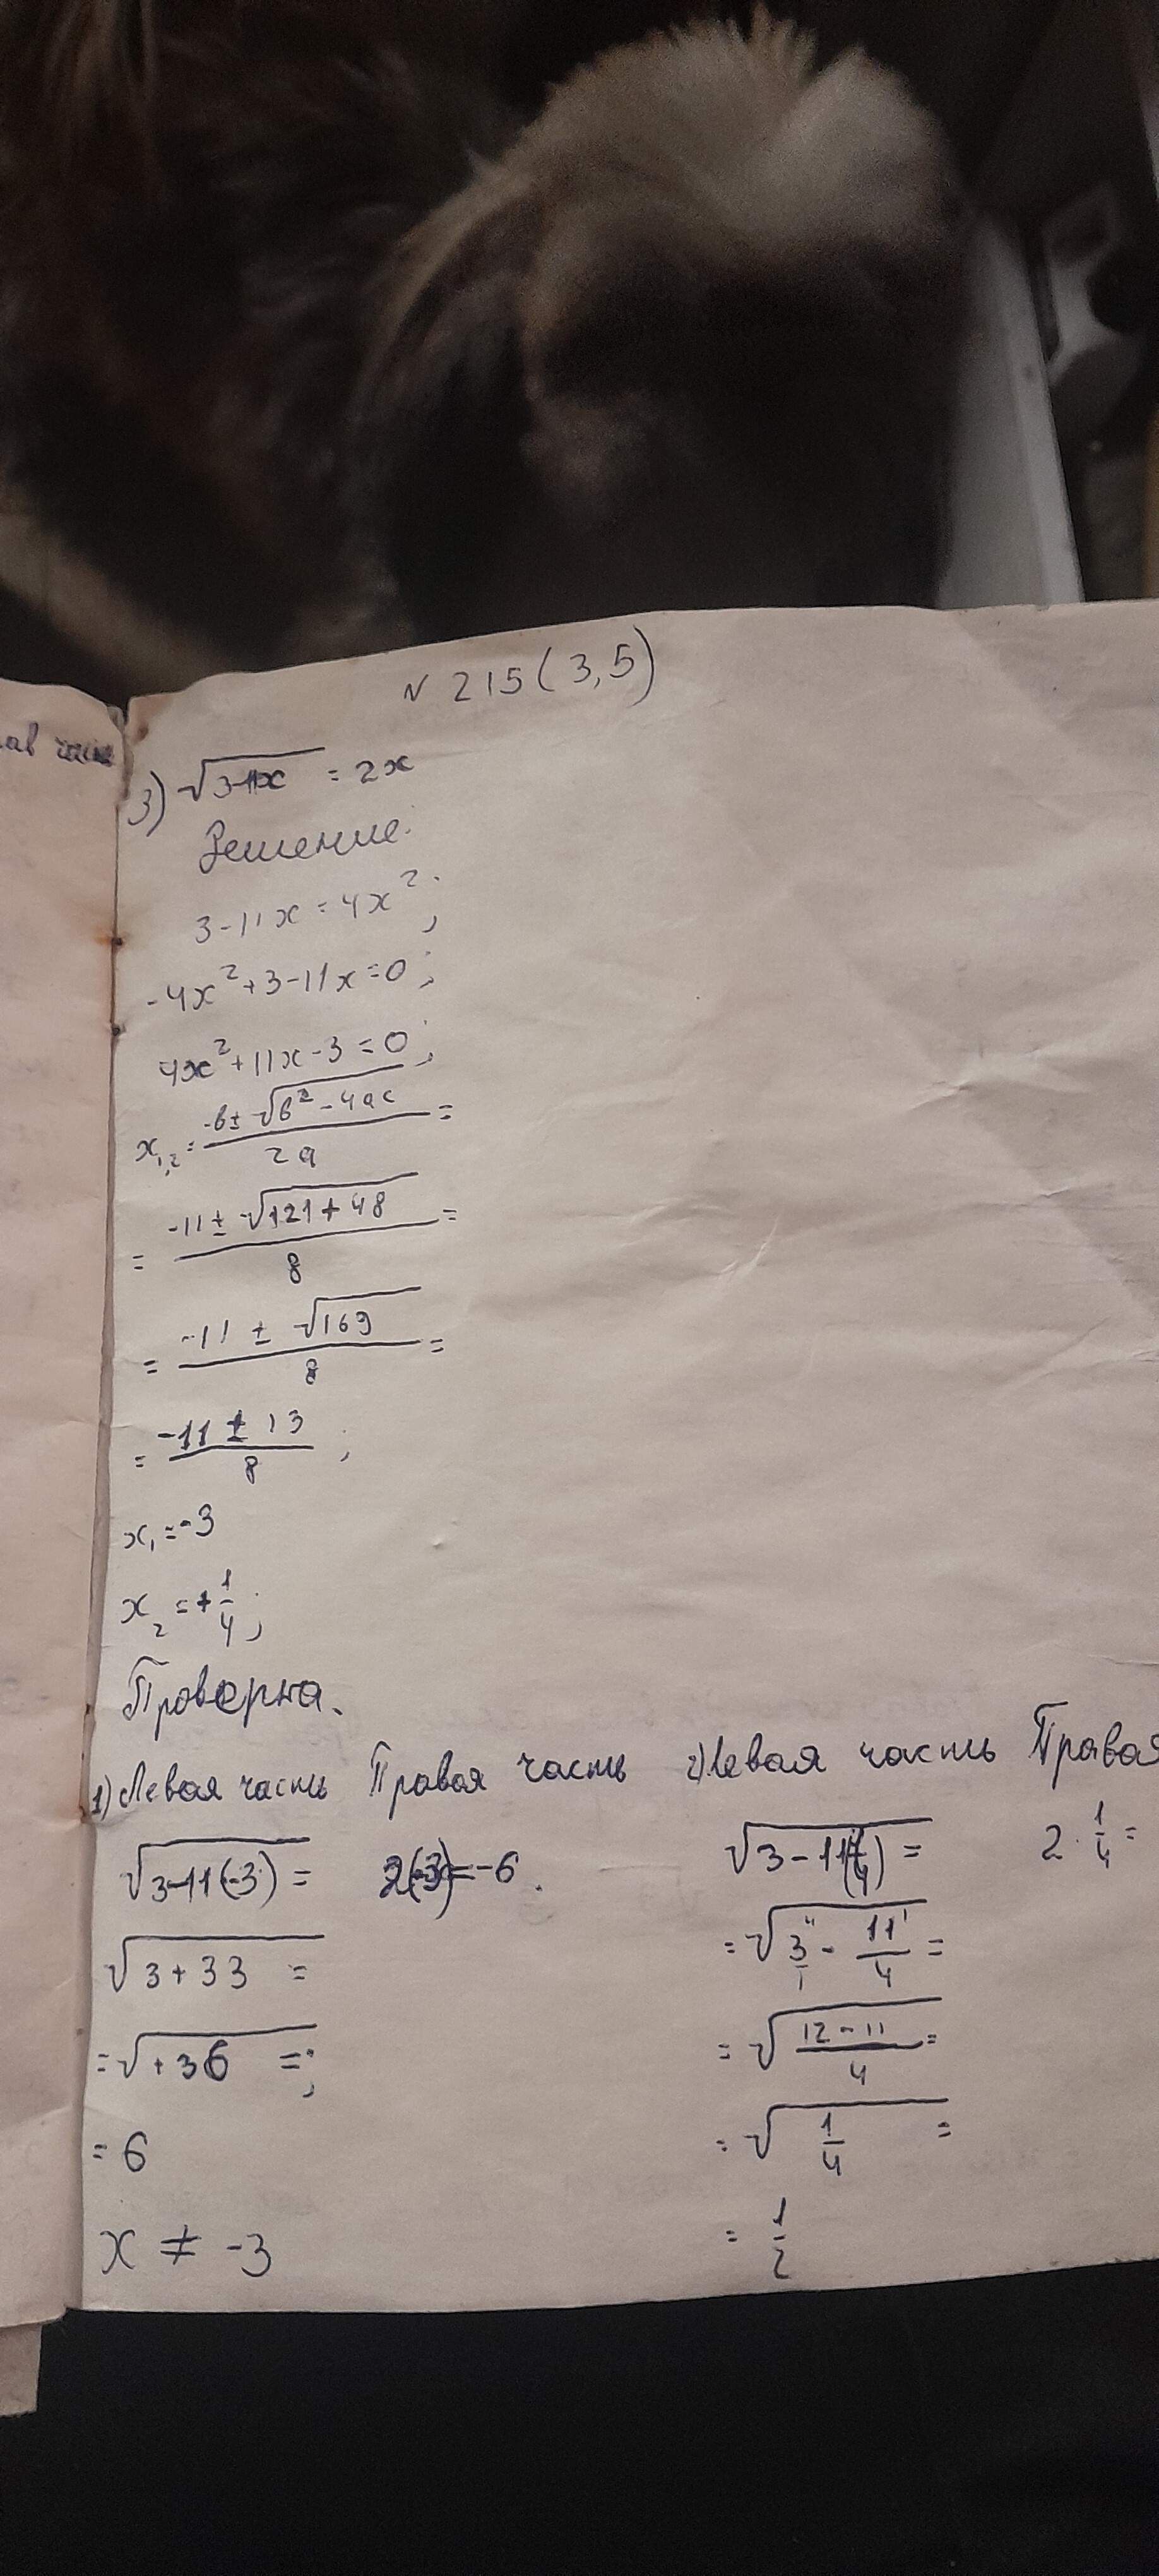 N 215 (3,5)
3) √(3-11x) = 2x
Решение:
3-11x = 4x²;
-4x²+3-11x=0;
4x²+11x-3=0;
x₁,₂ = (-b±√(b²-4ac))/2a =
= (-11±√(121+48))/8 =
= (-11 ± √169)/8 =
= (-11 ± 13)/8 ;
x₁ = -3
x₂ = +1/4;
Проверка.
1) Левая часть Правая часть 2) Левая часть Правая
√(3-11(-3)) = 2(-3)=-6. √(3-11(1/4)) = 2·1/4=
√(3+33) = = √(3/1 - 11/4) =
= √(+36) =; = √((12-11)/4) =
= 6 = √(1/4) =
x ≠ -3 = 1/2